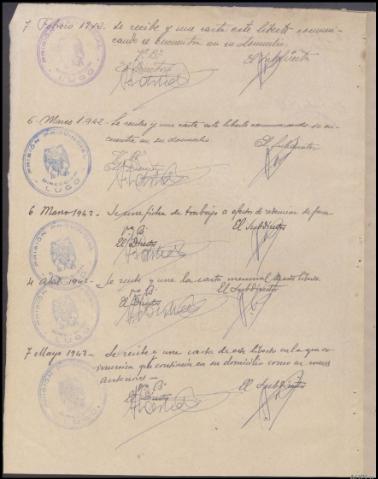 7 Febrero 1942. Se recibe y une carta este liberto comuni-
cando se encuentra en su domicilio.
Vº Bº
El Director
El Subdirector
PRISIÓN PROVINCIAL
LUGO
6 Marzo 1942 - Se recibe y une carta este liberto comunicando se en-
cuentra en su domicilio
Vº Bº
El Director
El Subdirector
PRISIÓN PROVINCIAL
DIRECCIÓN
LUGO
6 Marzo 1942 - Se une ficha de trabajo a efectos de redencion de pena
Vº Bº
El Director
El Subdirector
PRISIÓN PROVINCIAL
4 Abril 1942 - Se recibe y une la carta mensual de este liberto
Vº Bº
El Director
El Subdirector
7 Mayo 1942 - Se recibe y une carta de este liberto en la que co-
munica que continua en su domicilio como en meses
anteriores -
Vº Bº
El Director
El Subdirector
LUGO